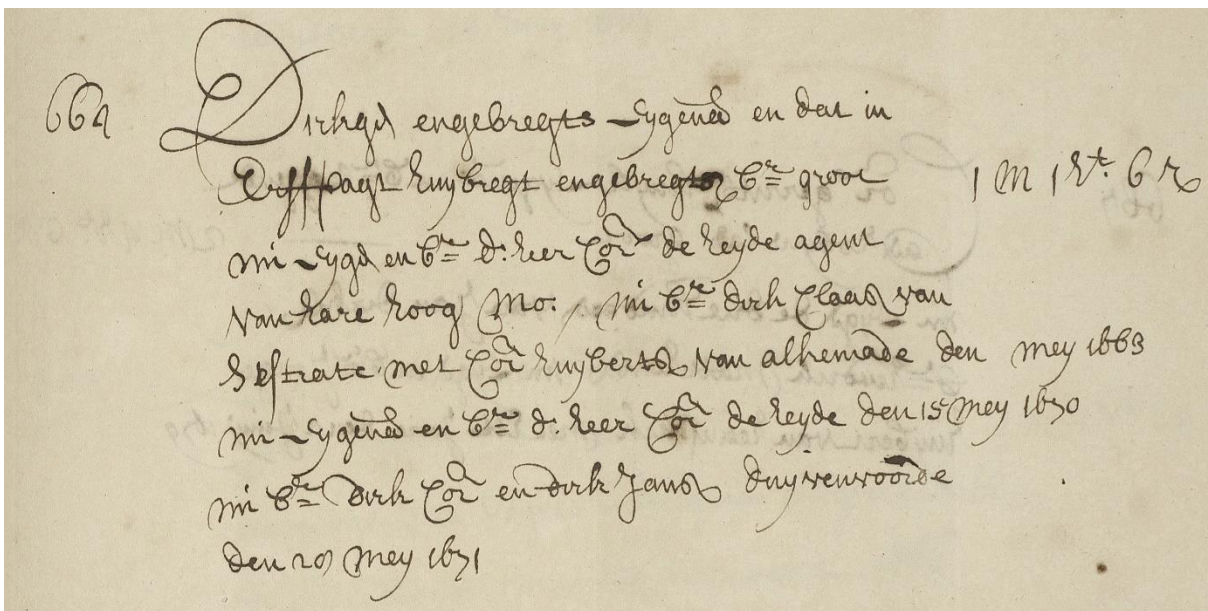 664 Dirkgd engebregts Eygend en dat in
Erffpagt huybregt engebregtsz br groot 1 m 1 ht 6 r
nu Eygd en br d: heer Cor de heyde agent
van hare hoog Mo: / nu br dirk Claasz van
hestrate met Cor huybertsz van alkemade den mey 1663
nu Eygend en br d: heer Cor de heyde den 15 mey 1670
nu br Dirk Cor en dirk Jansz duyvenvoorde
den 29 mey 1671